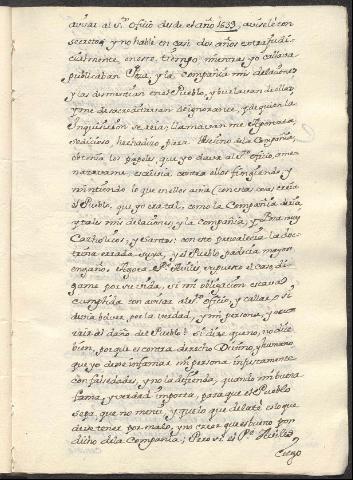 avisar al Sto. Oficio desde el año 1639, aviselé con
secretos y no hablé en casi dos años extrajudi-
cialmente, en este tiempo, mientras yo callava
publicavan y la Compañia mis delaciones
y las desmentian en el Pueblo, y burlavan de ellas
y me desacreditavan de ignorante, y de quien la
Inquisicion se reía; llamavanme
sedicioso, hechadizo para de la Compañia,
obtenia los papeles, que yo dava al Sto. Oficio, ame-
nazavanme, escrivia contra ellos fingiendo y
mintiendo lo que en ellos avia creia
el Pueblo, que yo era tal, como la Compañia decia
y tales mis delaciones, y la Compañia, y muy
Catholicos, y Santos: con esto prevalecia la doc-
trina errada suya, y el Pueblo padecia mayor
engaño. Agora Pe. Aviles supuesto el caso di-
game por su vida, si mi obligacion estava
cumplida con avisar al Sto. Oficio, y callar, o si
devia bolver por la verdad, y mi persona, y
del daño del Pueblo? Si dice que no, no dice
bien, porque es contra derecho Divino, y humano
que yo deje infamar mi persona injustamente
con falsedades, y no la defienda, quando mi buena
fama, y verdad importa, para que el Pueblo
sepa, que no mentí, y que lo que delaté es lo que
deve tener por malo, y no creer que es bueno por
dicho de la Compañia; Pero si el Pe. Aviles
ciego